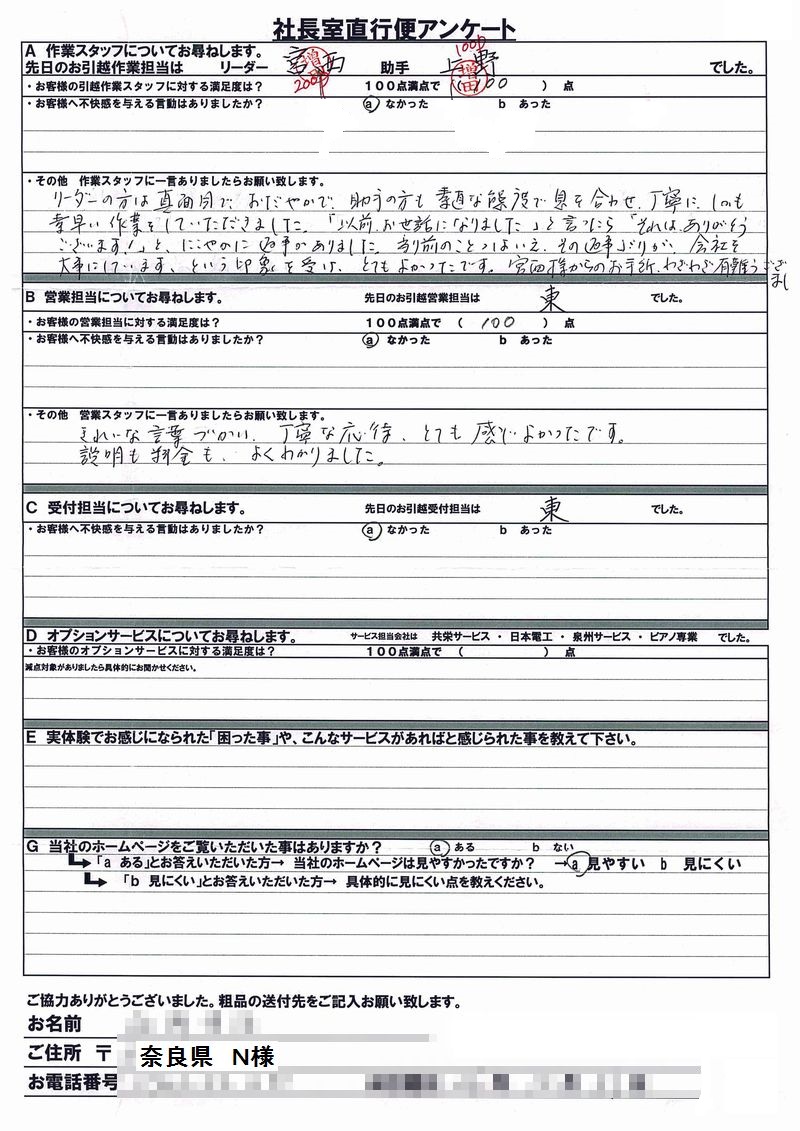 社長室直行便アンケート
A 作業スタッフについてお尋ねします。
先日のお引越作業担当は リーダー 宮西 助手 上野 でした。
200P 100P
・お客様の引越作業スタッフに対する満足度は? 100点満点で ( 100 ) 点
・お客様へ不快感を与える言動はありましたか? a なかった b あった
・その他 作業スタッフに一言ありましたらお願い致します。
リーダーの方は真面目で、おだやかで、助手の方も素適な態度で息を合わせ、丁寧に、しかも
素早い作業をしていただきました。「以前、お世話になりました」と言ったら「それは、ありがとう
ございます!」と、にこやかに返事がありました。当前のことつはいえ、その返事ぶりが、会社を
大事にしています、という印象を受け、とてもよかったです。宮西様からのお手紙、わざわざ有難うござ
まし
B 営業担当についてお尋ねします。 先日のお引越営業担当は 東 でした。
・お客様の営業担当に対する満足度は? 100点満点で ( 100 ) 点
・お客様へ不快感を与える言動はありましたか? a なかった b あった
・その他 営業スタッフに一言ありましたらお願い致します。
きれいな言葉づかい、丁寧な応待、とても感じよかったです。
説明も料金も、よくわかりました。
C 受付担当についてお尋ねします。 先日のお引越受付担当は 東 でした。
・お客様へ不快感を与える言動はありましたか? a なかった b あった
D オプションサービスについてお尋ねします。 サービス担当会社は 共栄サービス ・ 日本電工 ・ 泉州サービス ・ ピアノ専業 でした。
・お客様のオプションサービスに対する満足度は? 100点満点で ( ) 点
減点対象がありましたら具体的にお聞かせください。
E 実体験でお感じになられた「困った事」や、こんなサービスがあればと感じられた事を教えて下さい。
G 当社のホームページをご覧いただいた事はありますか? a ある b ない
「a ある」とお答えいただいた方→ 当社のホームページは見やすかったですか? →a 見やすい b 見にくい
「b 見にくい」とお答えいただいた方→ 具体的に見にくい点を教えください。
ご協力ありがとうございました。粗品の送付先をご記入お願い致します。
お名前
ご住所 〒 奈良県 N様
お電話番号